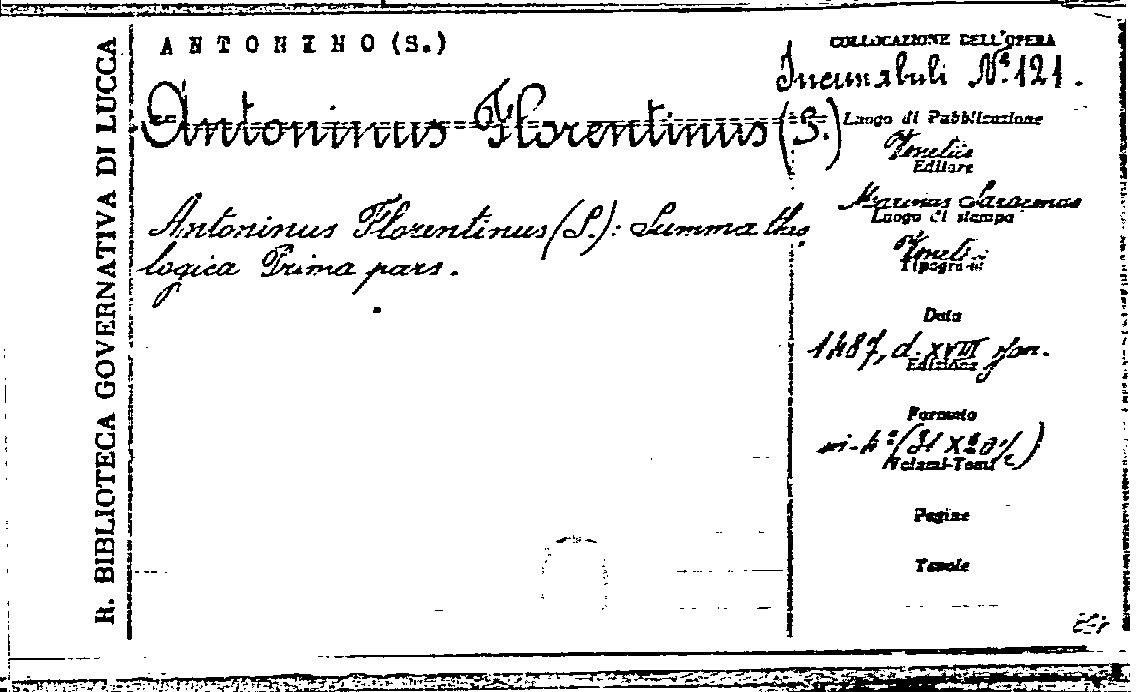 R. BIBLIOTECA GOVERNATIVA DI LUCCA
ANTONINO (S.)
Antoninus Florentinus (S.)
Antoninus Florentinus (S.): Summa theo
logica Prima pars.
COLLOCAZIONE DELL'OPERA
Incunabuli N.º 121.
Luogo di Pubblicazione
Venetiis
Editore
Marinus Saracenus
Luogo di stampa
Venetiis
Tipografia
Data
1487, d. XVIII Jan.
Edizione
Formato
in-4º (31 X 20 %)
Volumi-Tomi
Pagine
Tavole